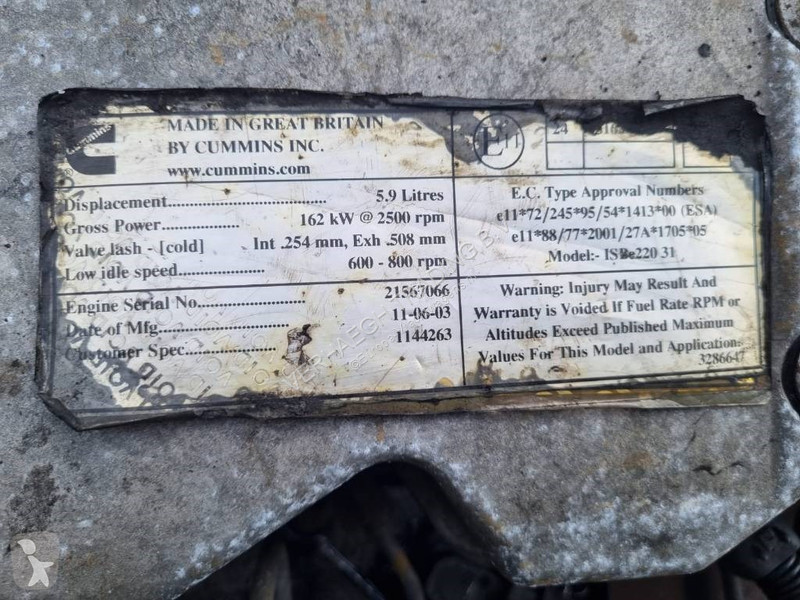 cummins
®
MADE IN GREAT BRITAIN
BY CUMMINS INC.
www.cummins.com
Displacement 5.9 Litres
Gross Power 162 kW @ 2500 rpm
Valve lash - [cold] Int .254 mm, Exh .508 mm
Low idle speed 600 - 800 rpm
Engine Serial No. 21567066
Date of Mfg. 11-06-03
Customer Spec. 1144263
E11
24
E.C. Type Approval Numbers
e11*72/245*95/54*1413*00 (ESA)
e11*88/77*2001/27A*1705*05
Model:- ISBe220 31
Warning: Injury May Result And
Warranty is Voided If Fuel Rate RPM or
Altitudes Exceed Published Maximum
Values For This Model and Application.
3286647